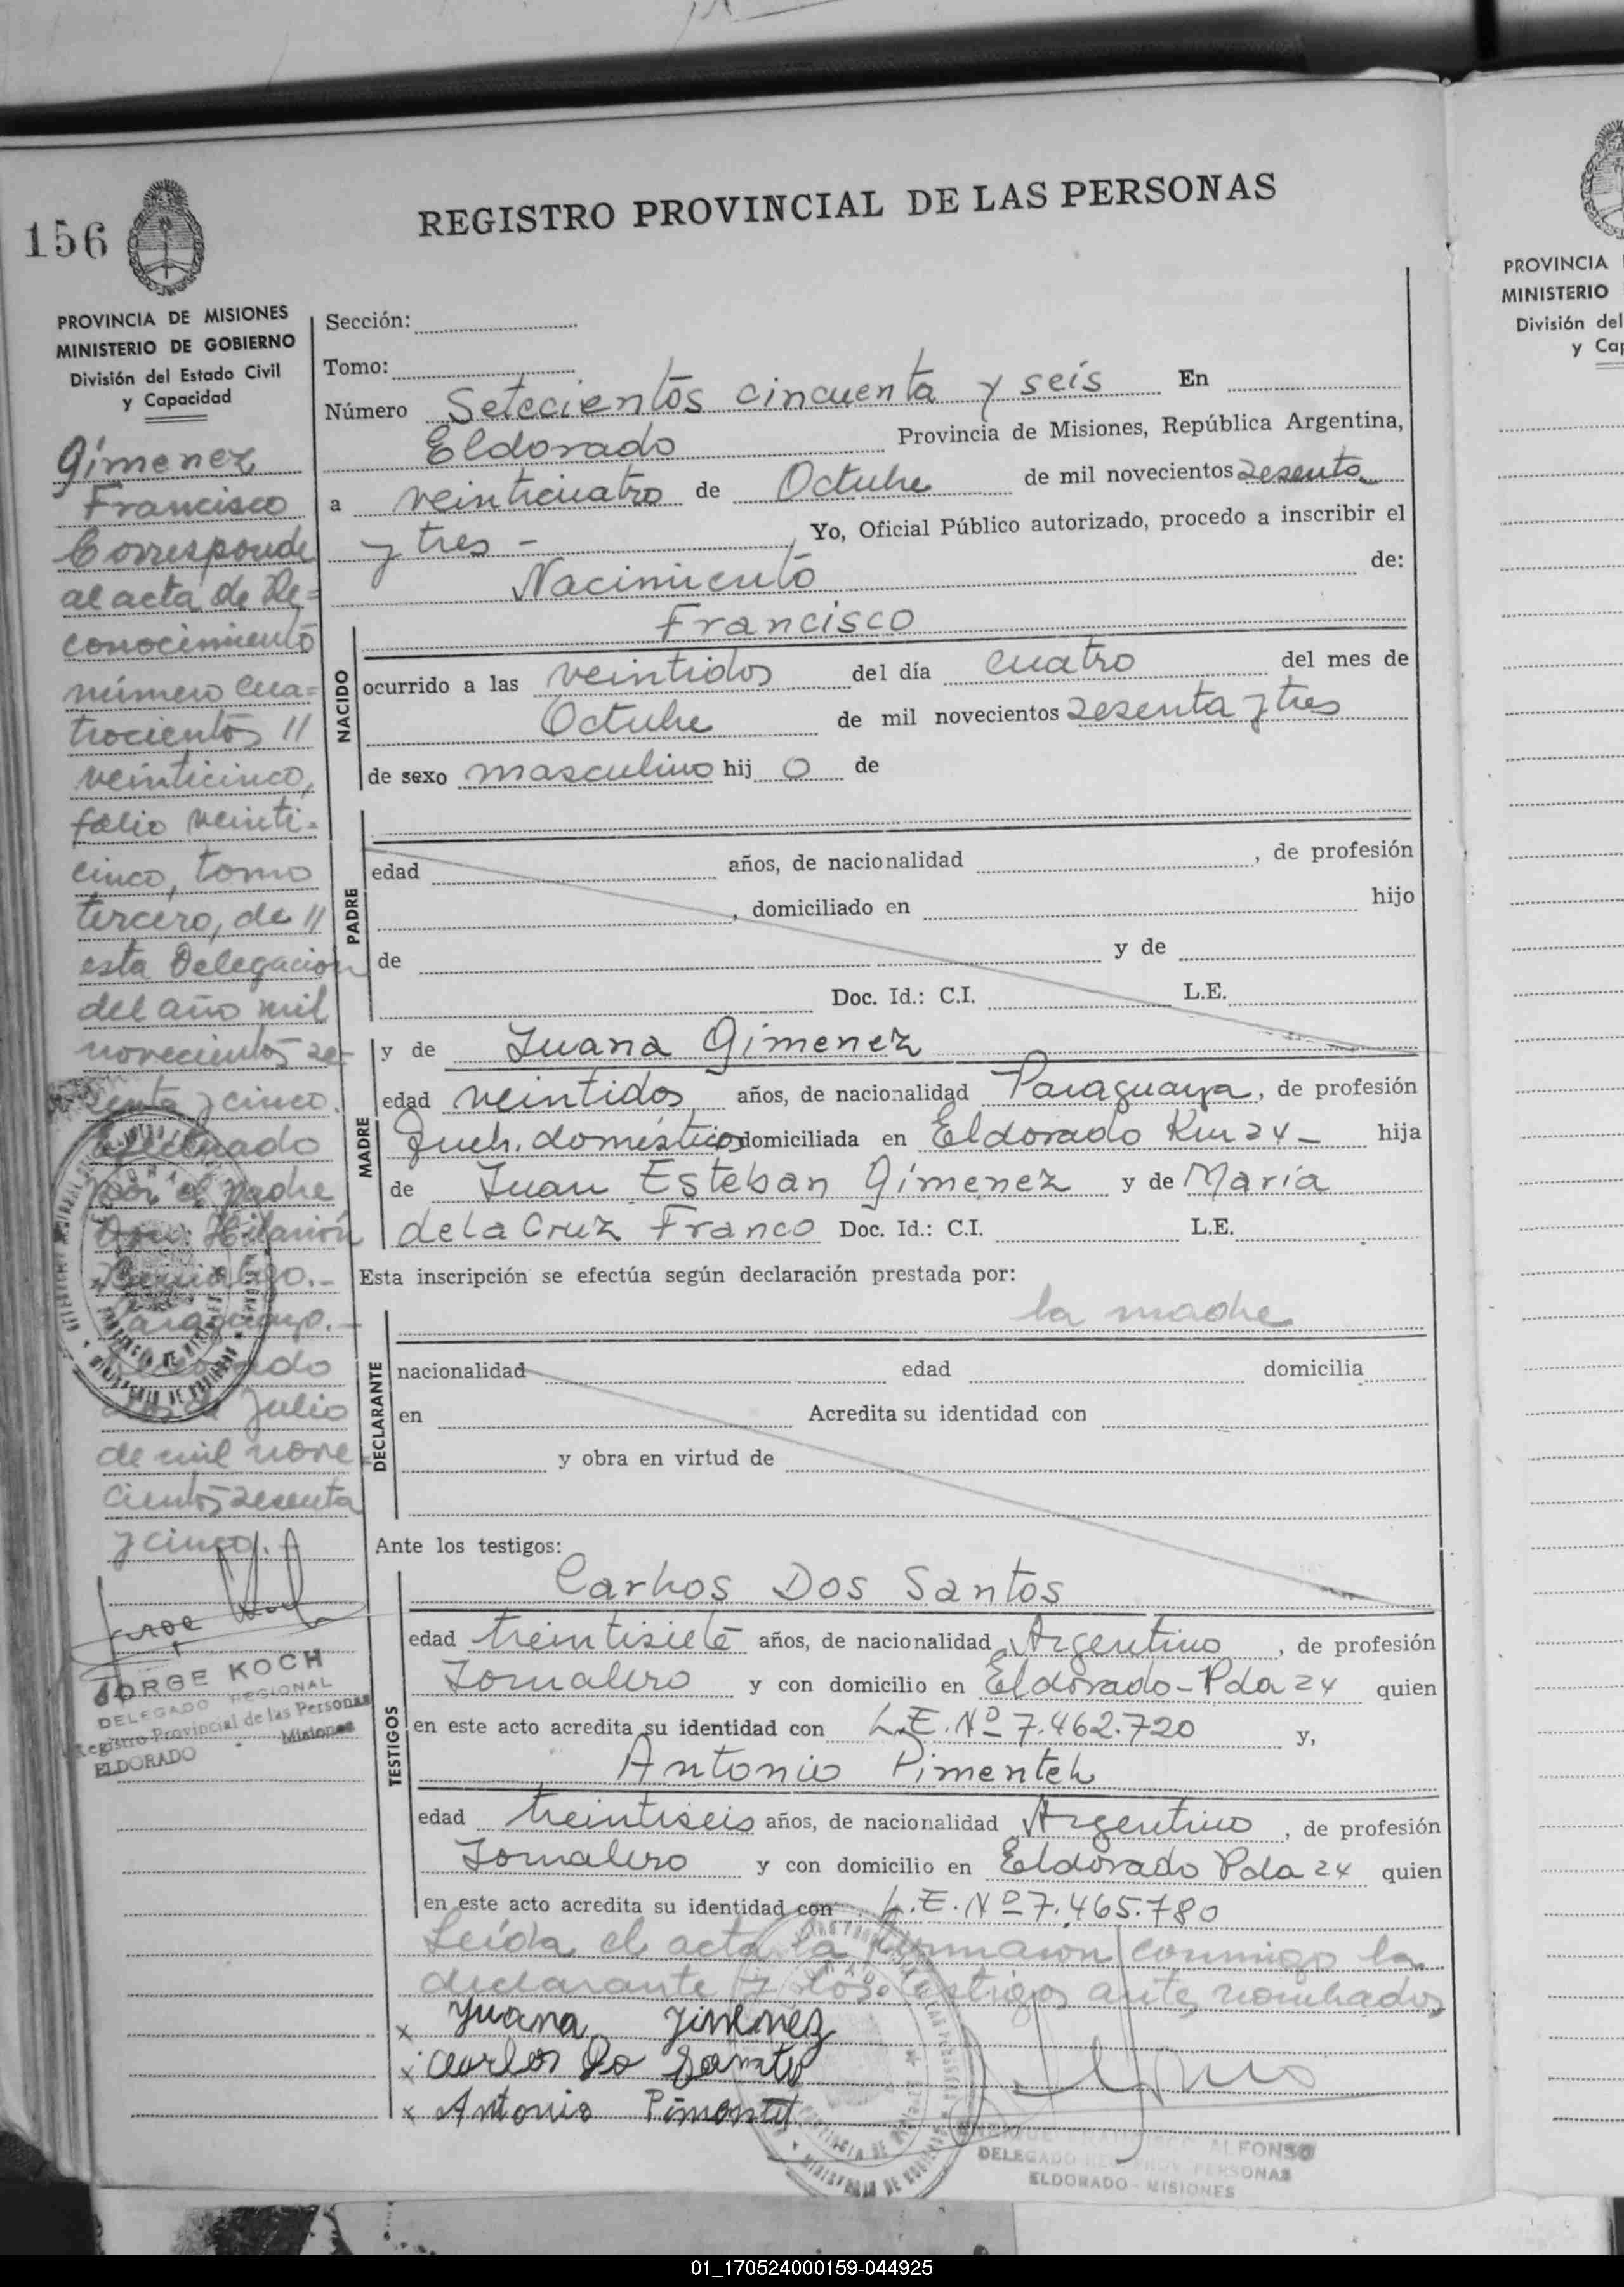 156
REGISTRO PROVINCIAL DE LAS PERSONAS
PROVINCIA DE MISIONES
MINISTERIO DE GOBIERNO
División del Estado Civil
y Capacidad
Gimenez
Francisco
Corresponde
al acta de Re=
conocimiento
número cua=
trocientos //
veinticinco,
folio veinti-
cinco, tomo
tercero, de //
esta Delegación
del año mil
novecientos se-
senta y cinco.
efectuado
por el padre
Don: Hilarión
Paraguayo.-
de Julio
de mil nove
cientos zesenta
y cinco.
JORGE KOCH
DELEGADO REGIONAL
Registro Provincial de las Personas
ELDORADO - Misiones
Sección:
Tomo:
Número Setecientos cincuenta y seis En
Eldorado Provincia de Misiones, República Argentina,
a veinticuatro de Octubre de mil novecientos zesenta
y tres - Yo, Oficial Público autorizado, procedo a inscribir el
Nacimiento de:
Francisco
NACIDO
ocurrido a las veintidos del día cuatro del mes de
Octubre de mil novecientos zesenta y tres
de sexo masculino hij o de
PADRE
edad años, de nacionalidad , de profesión
, domiciliado en hijo
de y de
Doc. Id.: C.I. L.E.
MADRE
y de Juana Gimenez
edad veintidos años, de nacionalidad Paraguaya, de profesión
Queh. domésticos domiciliada en Eldorado Km 24 - hija
de Juan Esteban Gimenez y de María
de la Cruz Franco Doc. Id.: C.I. L.E.
Esta inscripción se efectúa según declaración prestada por:
la madre
DECLARANTE
nacionalidad edad domicilia
en Acredita su identidad con
y obra en virtud de
Ante los testigos:
TESTIGOS
Carlos Dos Santos
edad treintisiete años, de nacionalidad Argentino, de profesión
Jornalero y con domicilio en Eldorado-Pda 24 quien
en este acto acredita su identidad con L.E. Nº 7.462.720 y,
Antonio Pimentel
edad treintiseis años, de nacionalidad Argentino, de profesión
Jornalero y con domicilio en Eldorado Pda 24 quien
en este acto acredita su identidad con L.E. Nº 7.465.780
Leída el acta la firmaron conmigo la
declarante y los testigos antes nombrados
x Juana Jimenez
x Carlos Do Santo
x Antonio Pimentel
ALFONSO
DELEGADO REG. PROV. PERSONAS
ELDORADO - MISIONES
PROVINCIA
MINISTERIO
División del
y Cap
01_170524000159-044925